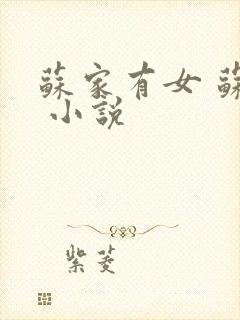 蘇家有女 蘇
小說
紫菱